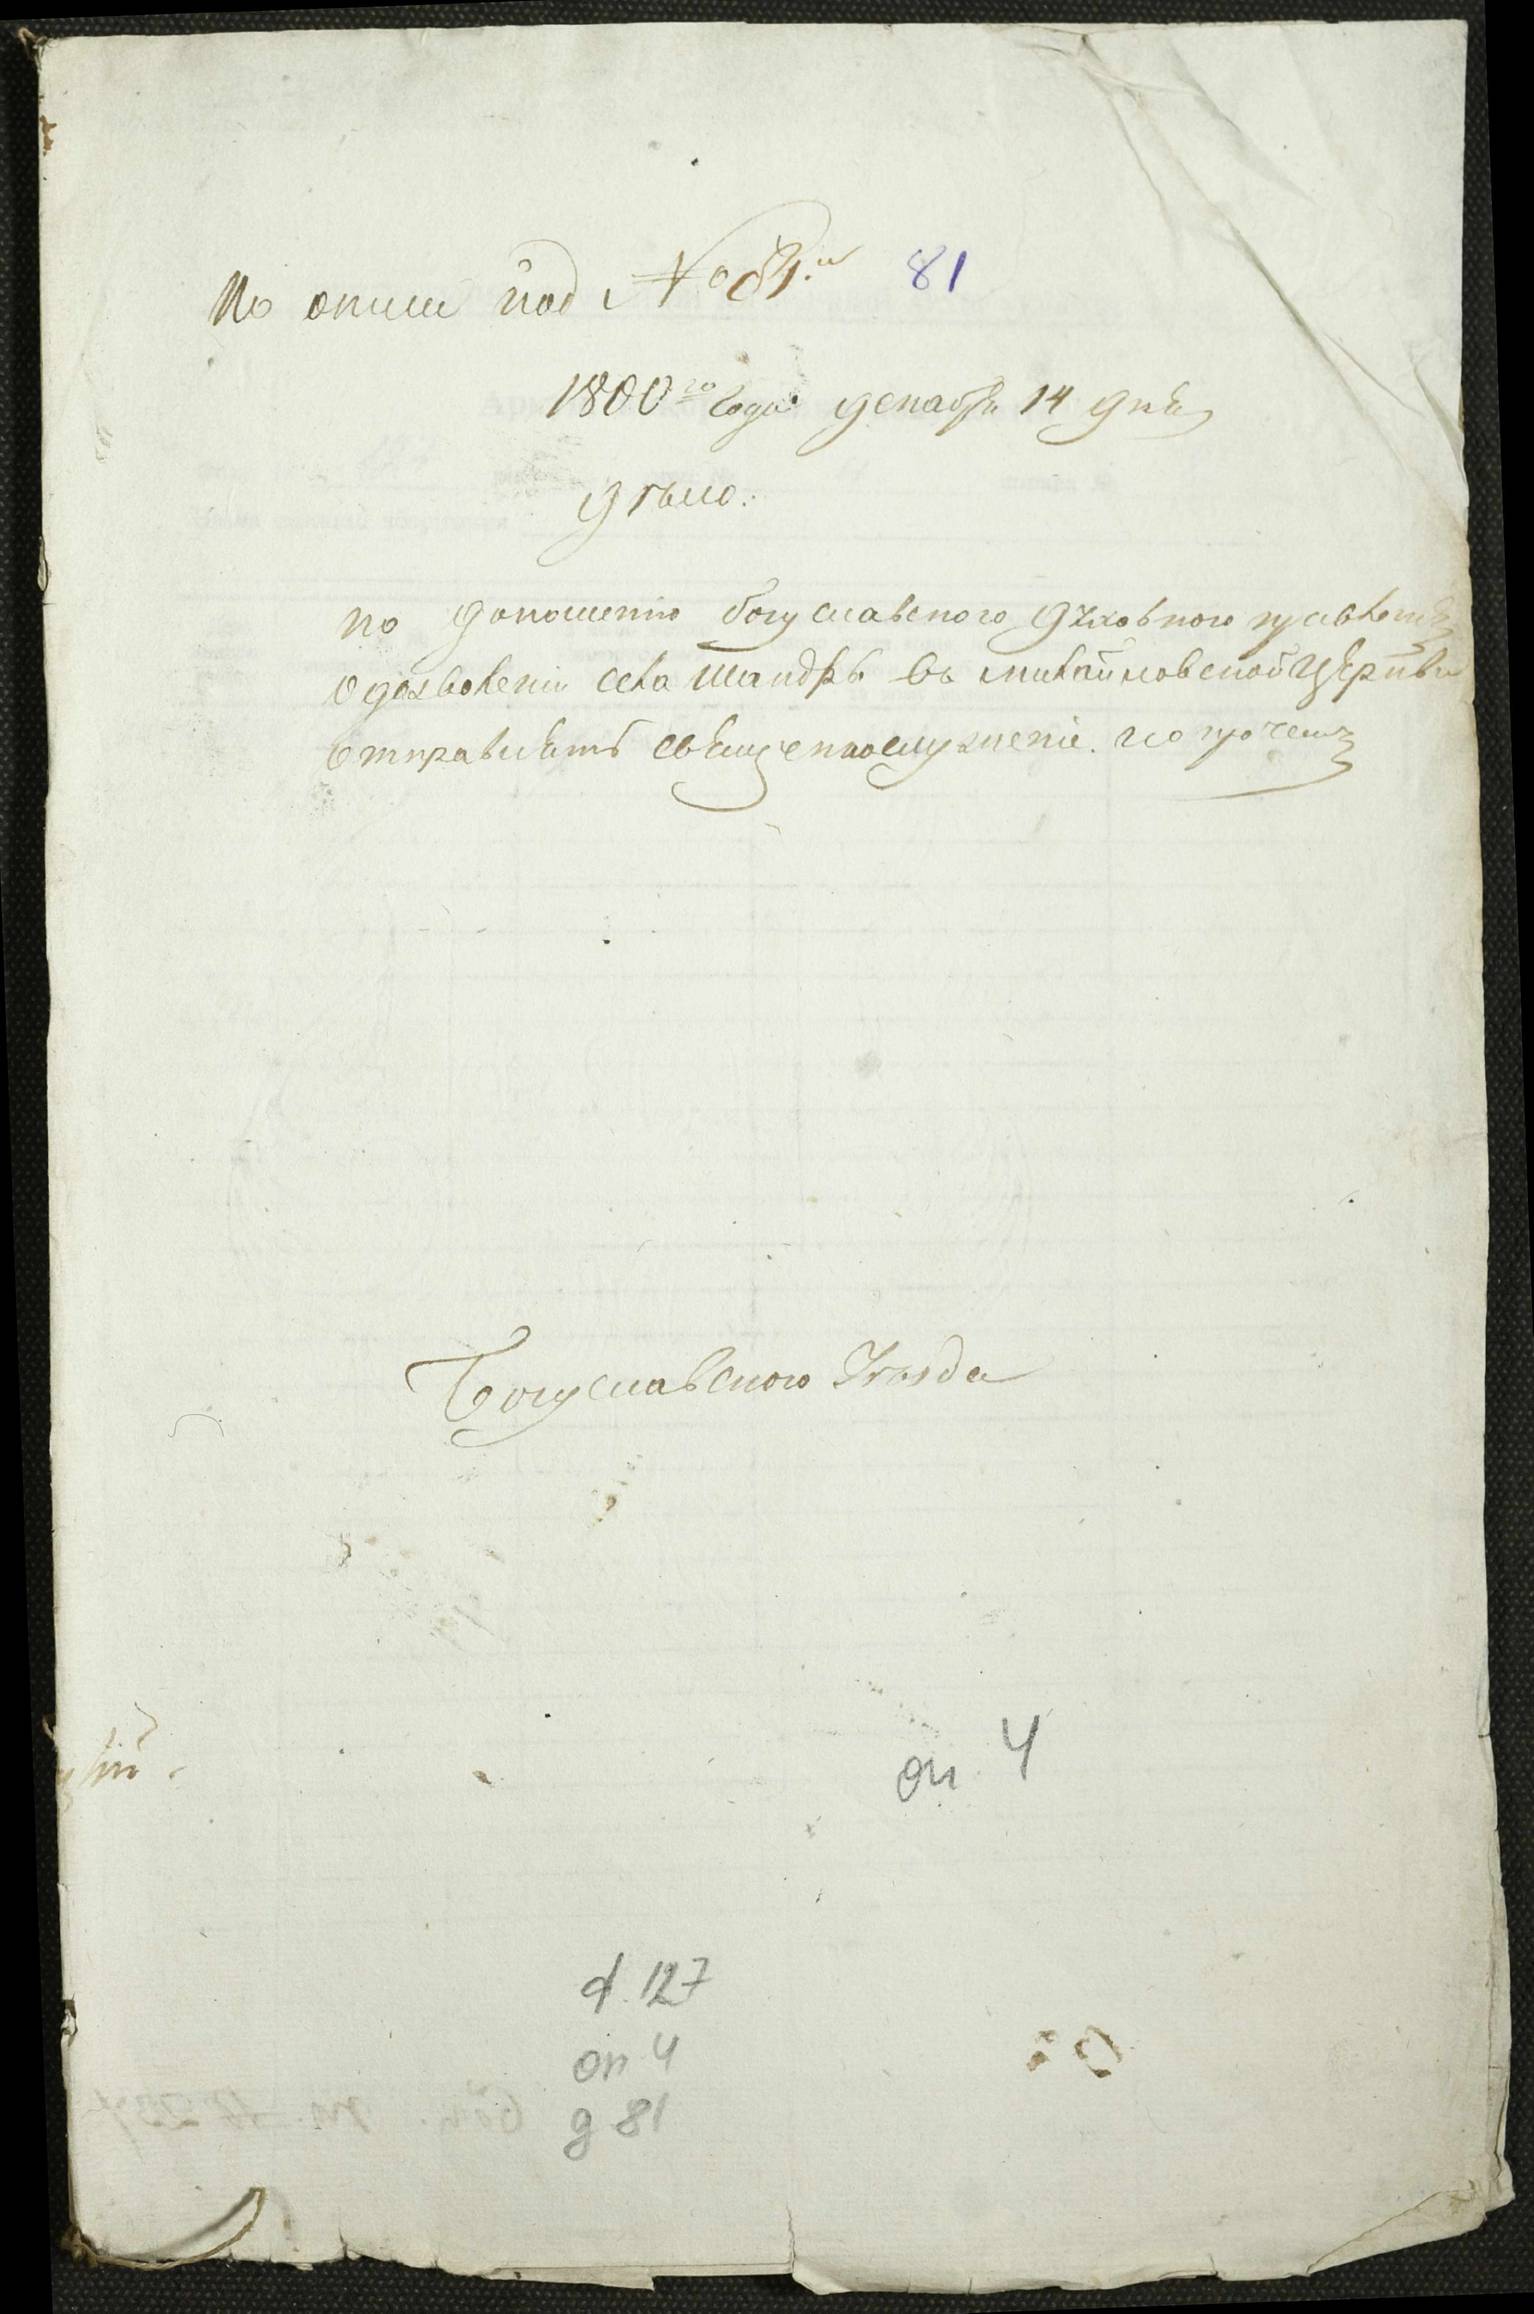 По описи под № 81.м 81
1800го года декабря 14 дня
дѣло:
по доношению богуславского духовного правления
о дозволении села Шандръ въ михайловской церкви
отправлять священнослужение. и о прочемъ
Богуславского Уѣзда
оп 4
ф. 127
оп 4
д 81